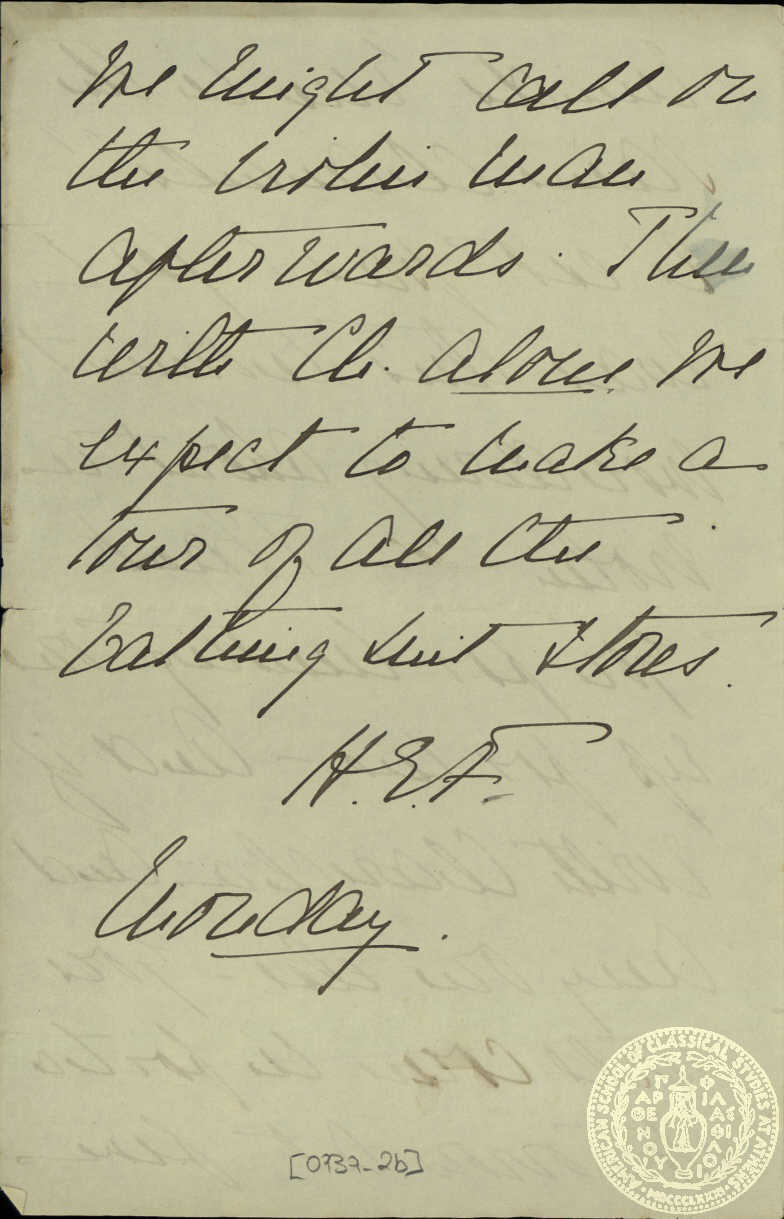 We might call on
the violin man
afterwards. Then
with Ch. alone we
expect to make a
tour of all the
bathing suit stores.
H.E.F.
Monday.
[0737-2b]
AMERICAN SCHOOL OF CLASSICAL STUDIES AT ATHENS
ΠΑΡΘΕΝΟΥ ΦΙΛΑΣ ΦΙΛΟΥ
MDCCCLXXXI